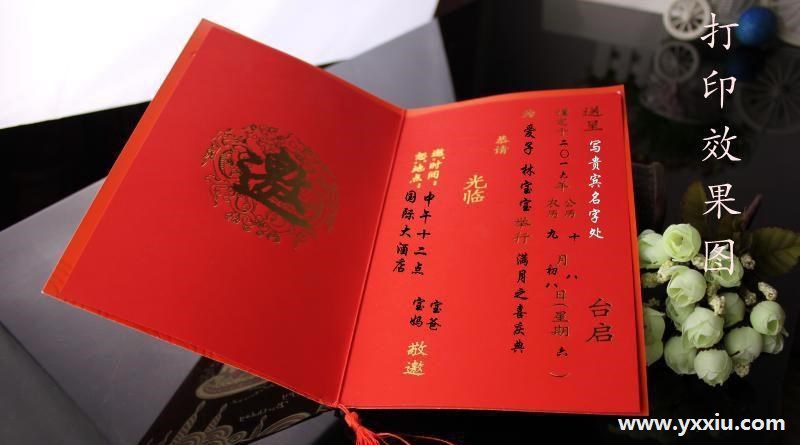 打印效果图
送呈 写贵宾名字处 台启
谨定于二〇一六年 公历 十 月 八 日(星期 六 )
农历 九 初八
为 爱子 林宝宝 举行 满月之喜庆典
恭请
光临
时间：中午十二点
地点：国际大酒店
宝爸
宝妈
敬邀
邀
www.yxxiu.com